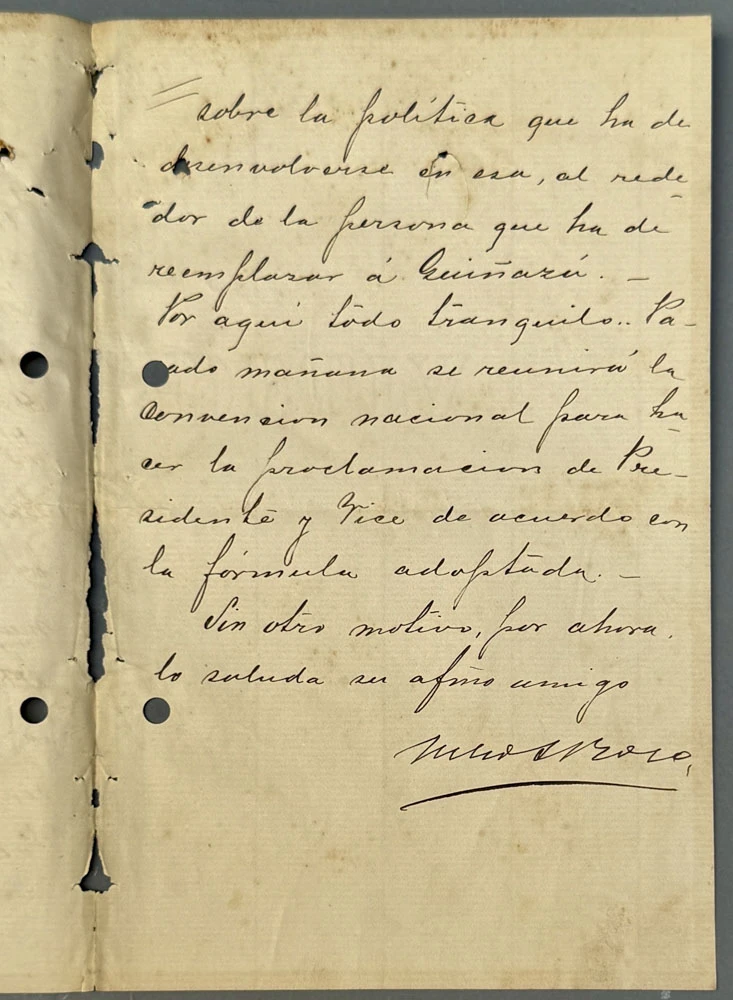 sobre la política que ha de
desenvolverse en esa, al rede
dor de la persona que ha de
reemplazar á Guiñazú. —
Por aqui todo tranquilo.. Pa-
sado mañana se reunirá la
convencion nacional para ha-
cer la proclamacion de Pre-
sidente y Vice de acuerdo con
la fórmula adoptada. —
Sin otro motivo, por ahora,
lo saluda su afmo amigo
Julio A Roca